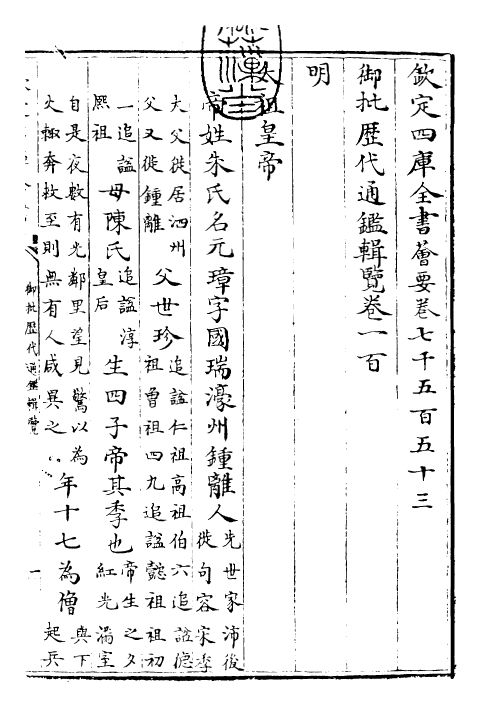 欽定四庫全書薈要卷七千五百五十三
御批歴代通鑑輯覽卷一百
明
太祖皇帝
帝姓朱氏名元璋字國瑞濠州鍾離人先世家沛後徙句容宋季
大父徙居泗州父又徙鍾離父世珍追諡仁祖高祖伯六追諡德祖曾祖四九追諡懿祖祖初
一追諡熙祖母陳氏追諡淳皇后生四子帝其季也帝生之夕紅光滿室
自是夜數有光鄰里望見驚以為火輒奔救至則無有人咸異之年十七為僧與下起兵
御批歴代通鑑輯覽 一